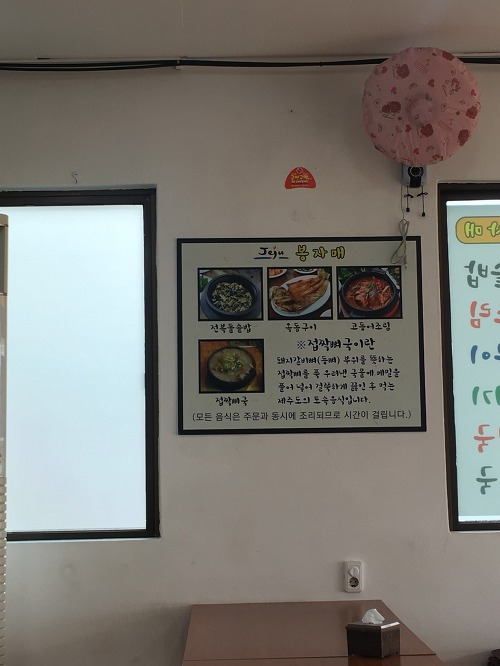 Jeju 봉자매
전복돌솥밥 옥돔구이 고등어조림
※접짝뼈국이란
돼지갈비뼈(등뼈) 부위를 뜻하는
접짝뼈를 푹 우려낸 국물에 메밀을
풀어 넣어 걸쭉하게 끓인 후 먹는
제주도의 토속음식입니다.
접짝뼈국
(모든 음식은 주문과 동시에 조리되므로 시간이 걸립니다.)